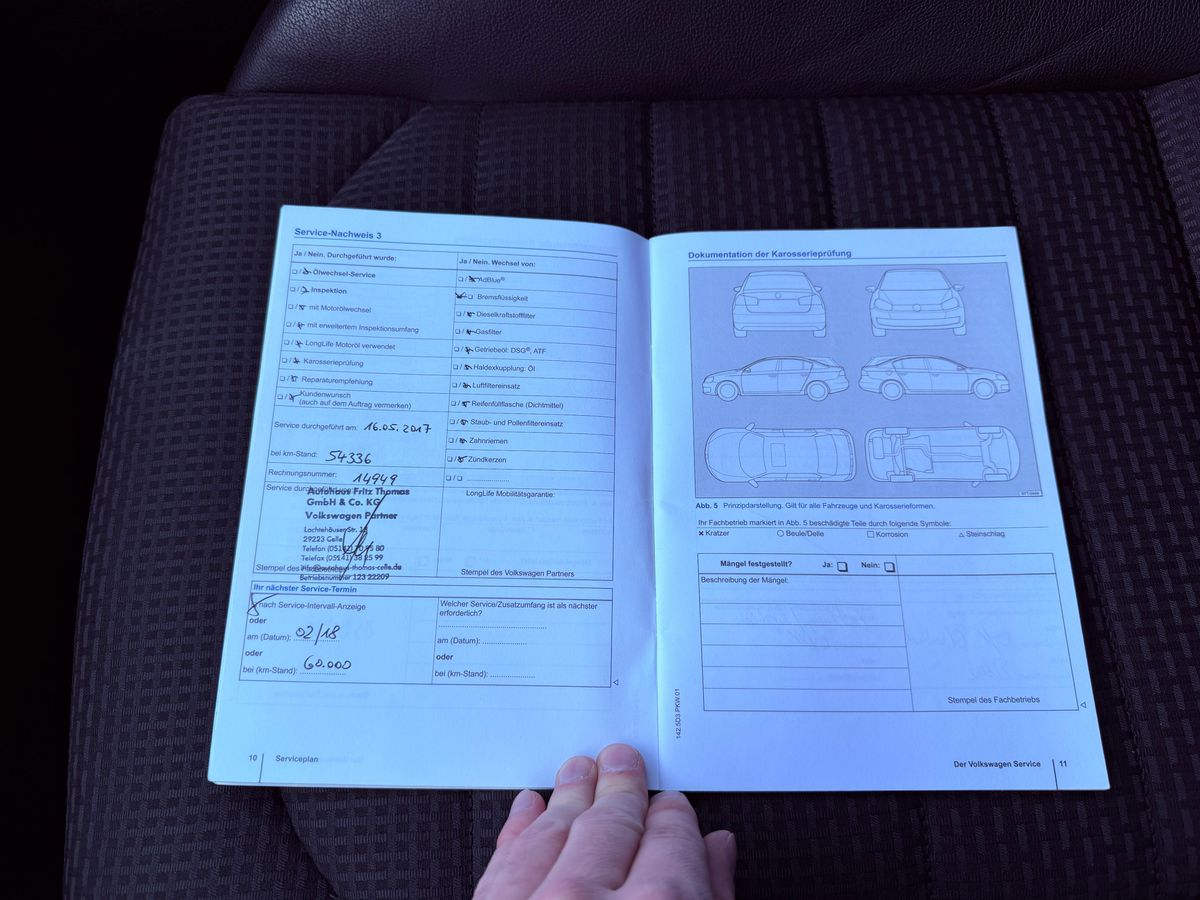 Service-Nachweis 3
Ja / Nein. Durchgeführt wurde:
Ölwechsel-Service
Inspektion
mit Motorölwechsel
mit erweitertem Inspektionsumfang
LongLife Motoröl verwendet
Karosserieprüfung
Reparaturempfehlung
Kundenwunsch
(auch auf dem Auftrag vermerken)
Service durchgeführt am: 16.05.2017
bei km-Stand: 54336
Rechnungsnummer: 14949
Service durchgeführt
Autohaus Fritz Thomas
GmbH & Co. KG
Volkswagen Partner
Lachtehäuser Str.
29223 Celle
Telefon
Telefax
Stempel des
Betriebsnummer 123 22209
Ja / Nein. Wechsel von:
AdBlue®
Bremsflüssigkeit
Dieselkraftstofffilter
Gasfilter
Getriebeöl: DSG®, ATF
Haldexkupplung: Öl
Luftfiltereinsatz
Reifenfüllflasche (Dichtmittel)
Staub- und Pollenfiltereinsatz
Zahnriemen
Zündkerzen
LongLife Mobilitätsgarantie:
Stempel des Volkswagen Partners
Ihr nächster Service-Termin
nach Service-Intervall-Anzeige
oder
am (Datum): 02/18
oder
bei (km-Stand): 60.000
Welcher Service/Zusatzumfang ist als nächster
erforderlich?
am (Datum):
oder
bei (km-Stand):
10 Serviceplan
Dokumentation der Karosserieprüfung
Abb. 5 Prinzipdarstellung. Gilt für alle Fahrzeuge und Karosserieformen.
Ihr Fachbetrieb markiert in Abb. 5 beschädigte Teile durch folgende Symbole:
Kratzer Beule/Delle Korrosion Steinschlag
Mängel festgestellt? Ja: Nein:
Beschreibung der Mängel:
Stempel des Fachbetriebs
142.5D3.PKW.01
Der Volkswagen Service 11